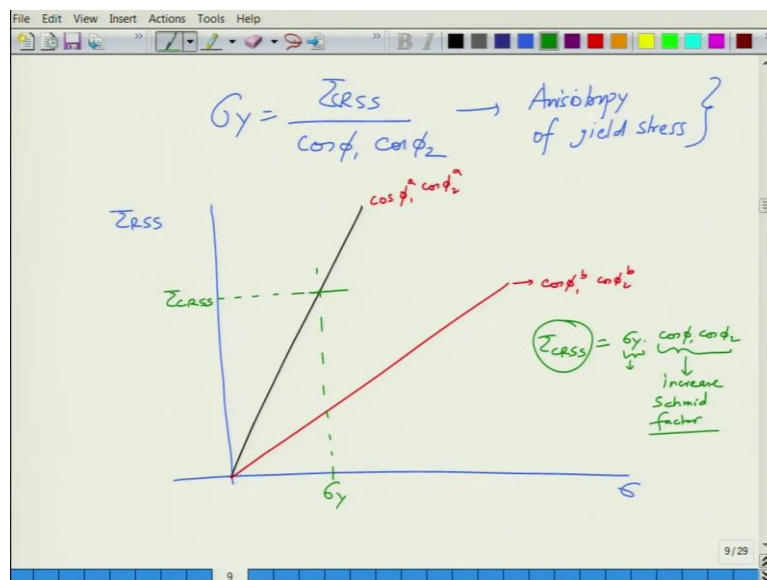 File Edit View Insert Actions Tools Help
B I
σy = τCRSS / cosφ₁ cosφ₂ → Anisotropy of yield stress }
cosφ₁ᵃ cosφ₂ᵃ
τRSS
→ cosφ₁ᵇ cosφ₂ᵇ
τCRSS
τCRSS = σy. cosφ₁ cosφ₂
↓ ↓
increase
Schmid
factor
σy
σ
9/29
9